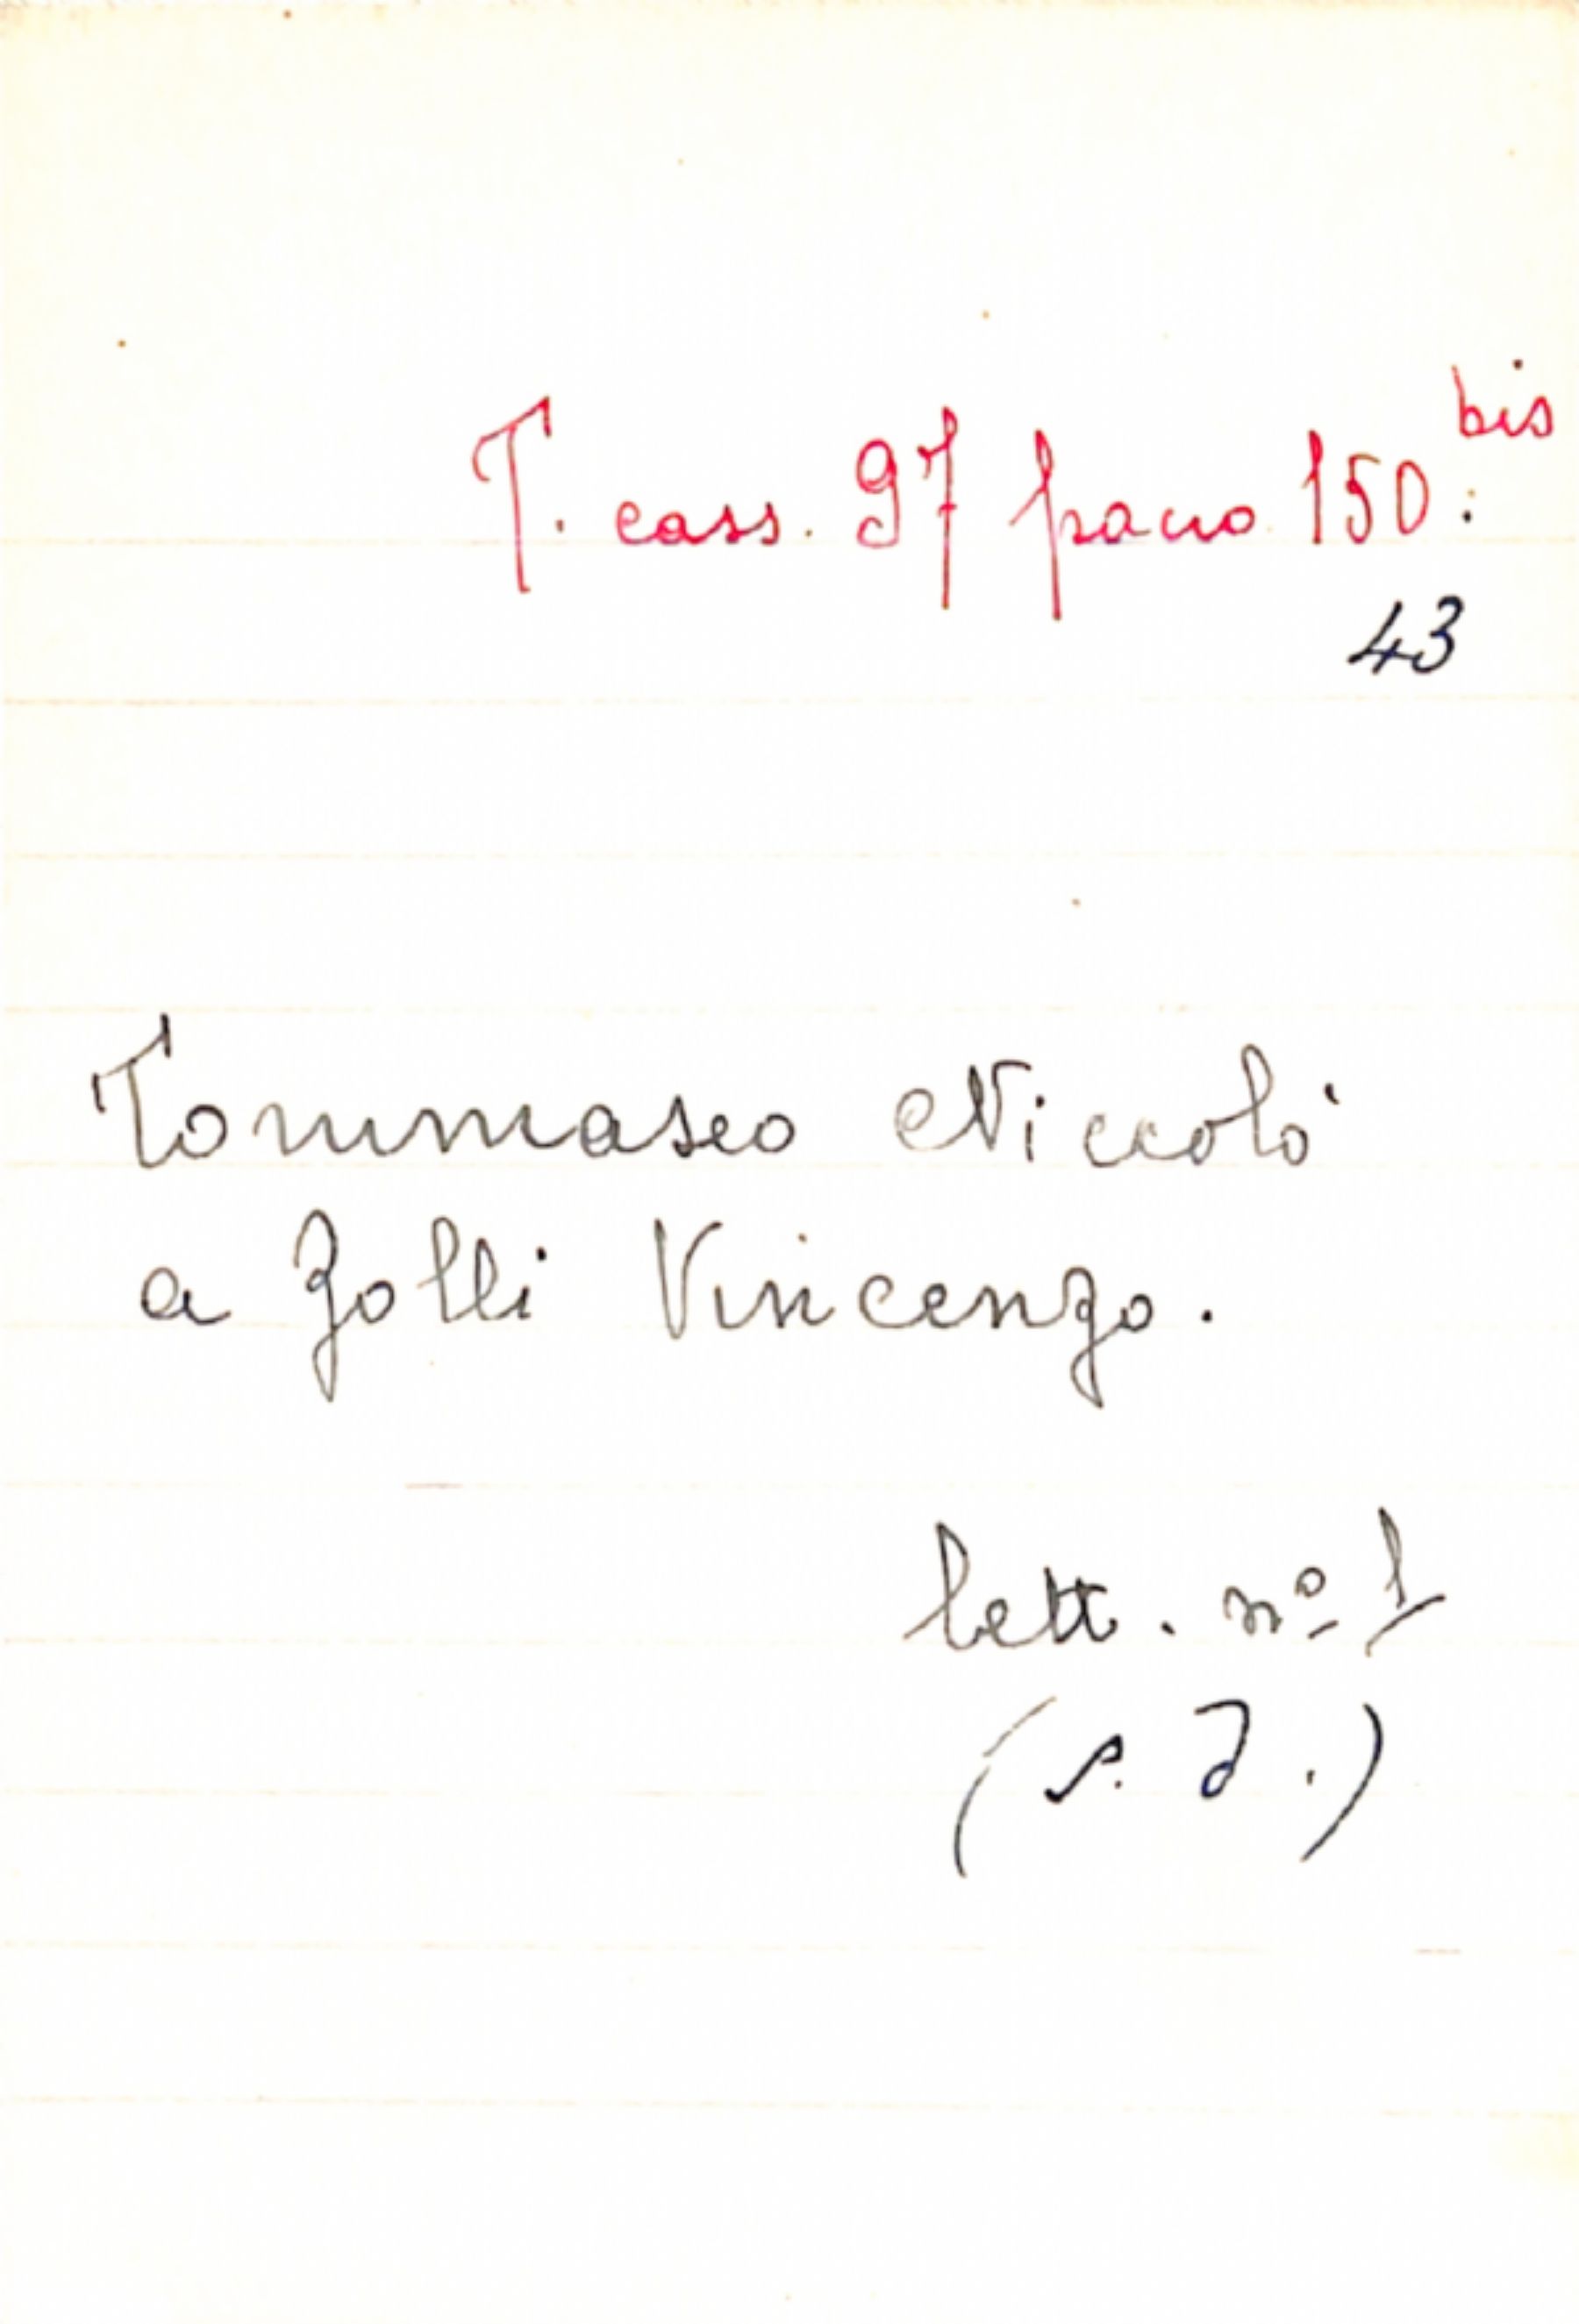 T. cass. 97 pacco 150: bis
43
Tommaseo Niccolò
a Zolli Vincenzo.
lett. nº 1
(s. d.)